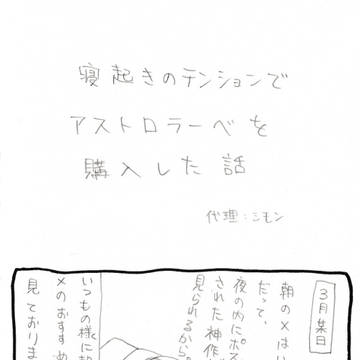 寝起きのテンションで
アストロラーベを
購入した話
代理：シモン
3月某日
朝のXはい
だって、
夜の内にポス
された神作
見られるから。
いつもの様に起
Xのおすすめ
見ておりま